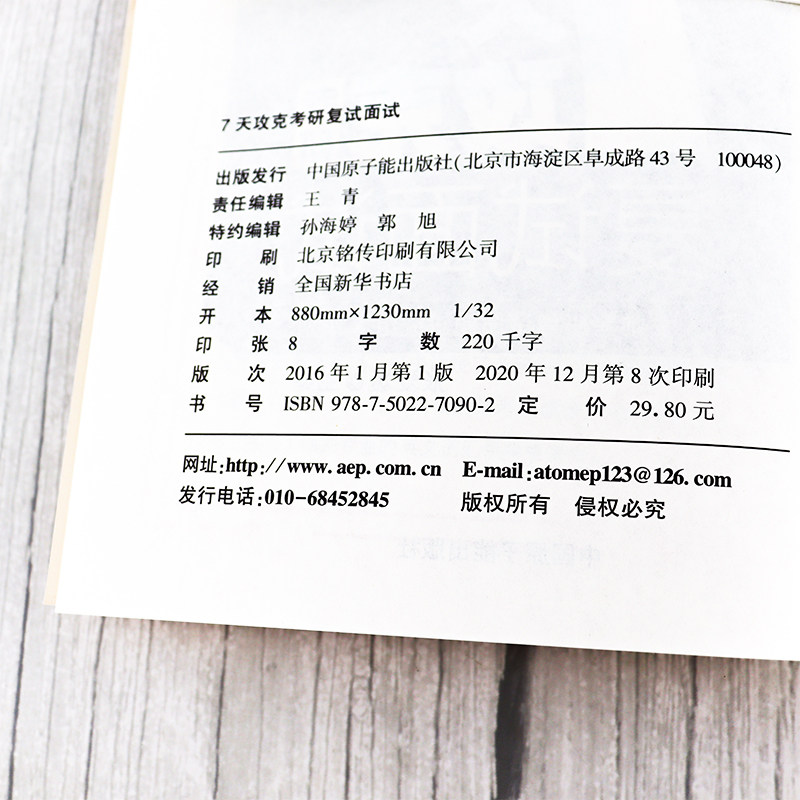 7 天攻克考研复试面试
出版发行 中国原子能出版社(北京市海淀区阜成路 43 号 100048)
责任编辑 王 青
特约编辑 孙海婷 郭 旭
印 刷 北京铭传印刷有限公司
经 销 全国新华书店
开 本 880mm×1230mm 1/32
印 张 8 字 数 220 千字
版 次 2016 年 1 月第 1 版 2020 年 12 月第 8 次印刷
书 号 ISBN 978-7-5022-7090-2 定 价 29.80 元
网址:http://www.aep.com.cn E-mail:atomep123@126.com
发行电话:010-68452845 版权所有 侵权必究